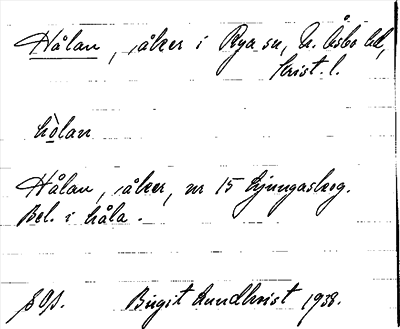 Hålan, åker i Rya sn, N. Åsbo hd,
Krist. l.
hòlan
Hålan, åker, nr 15 Ljungaskog.
Bel. i håla.
Birgit Lundkvist 1938.